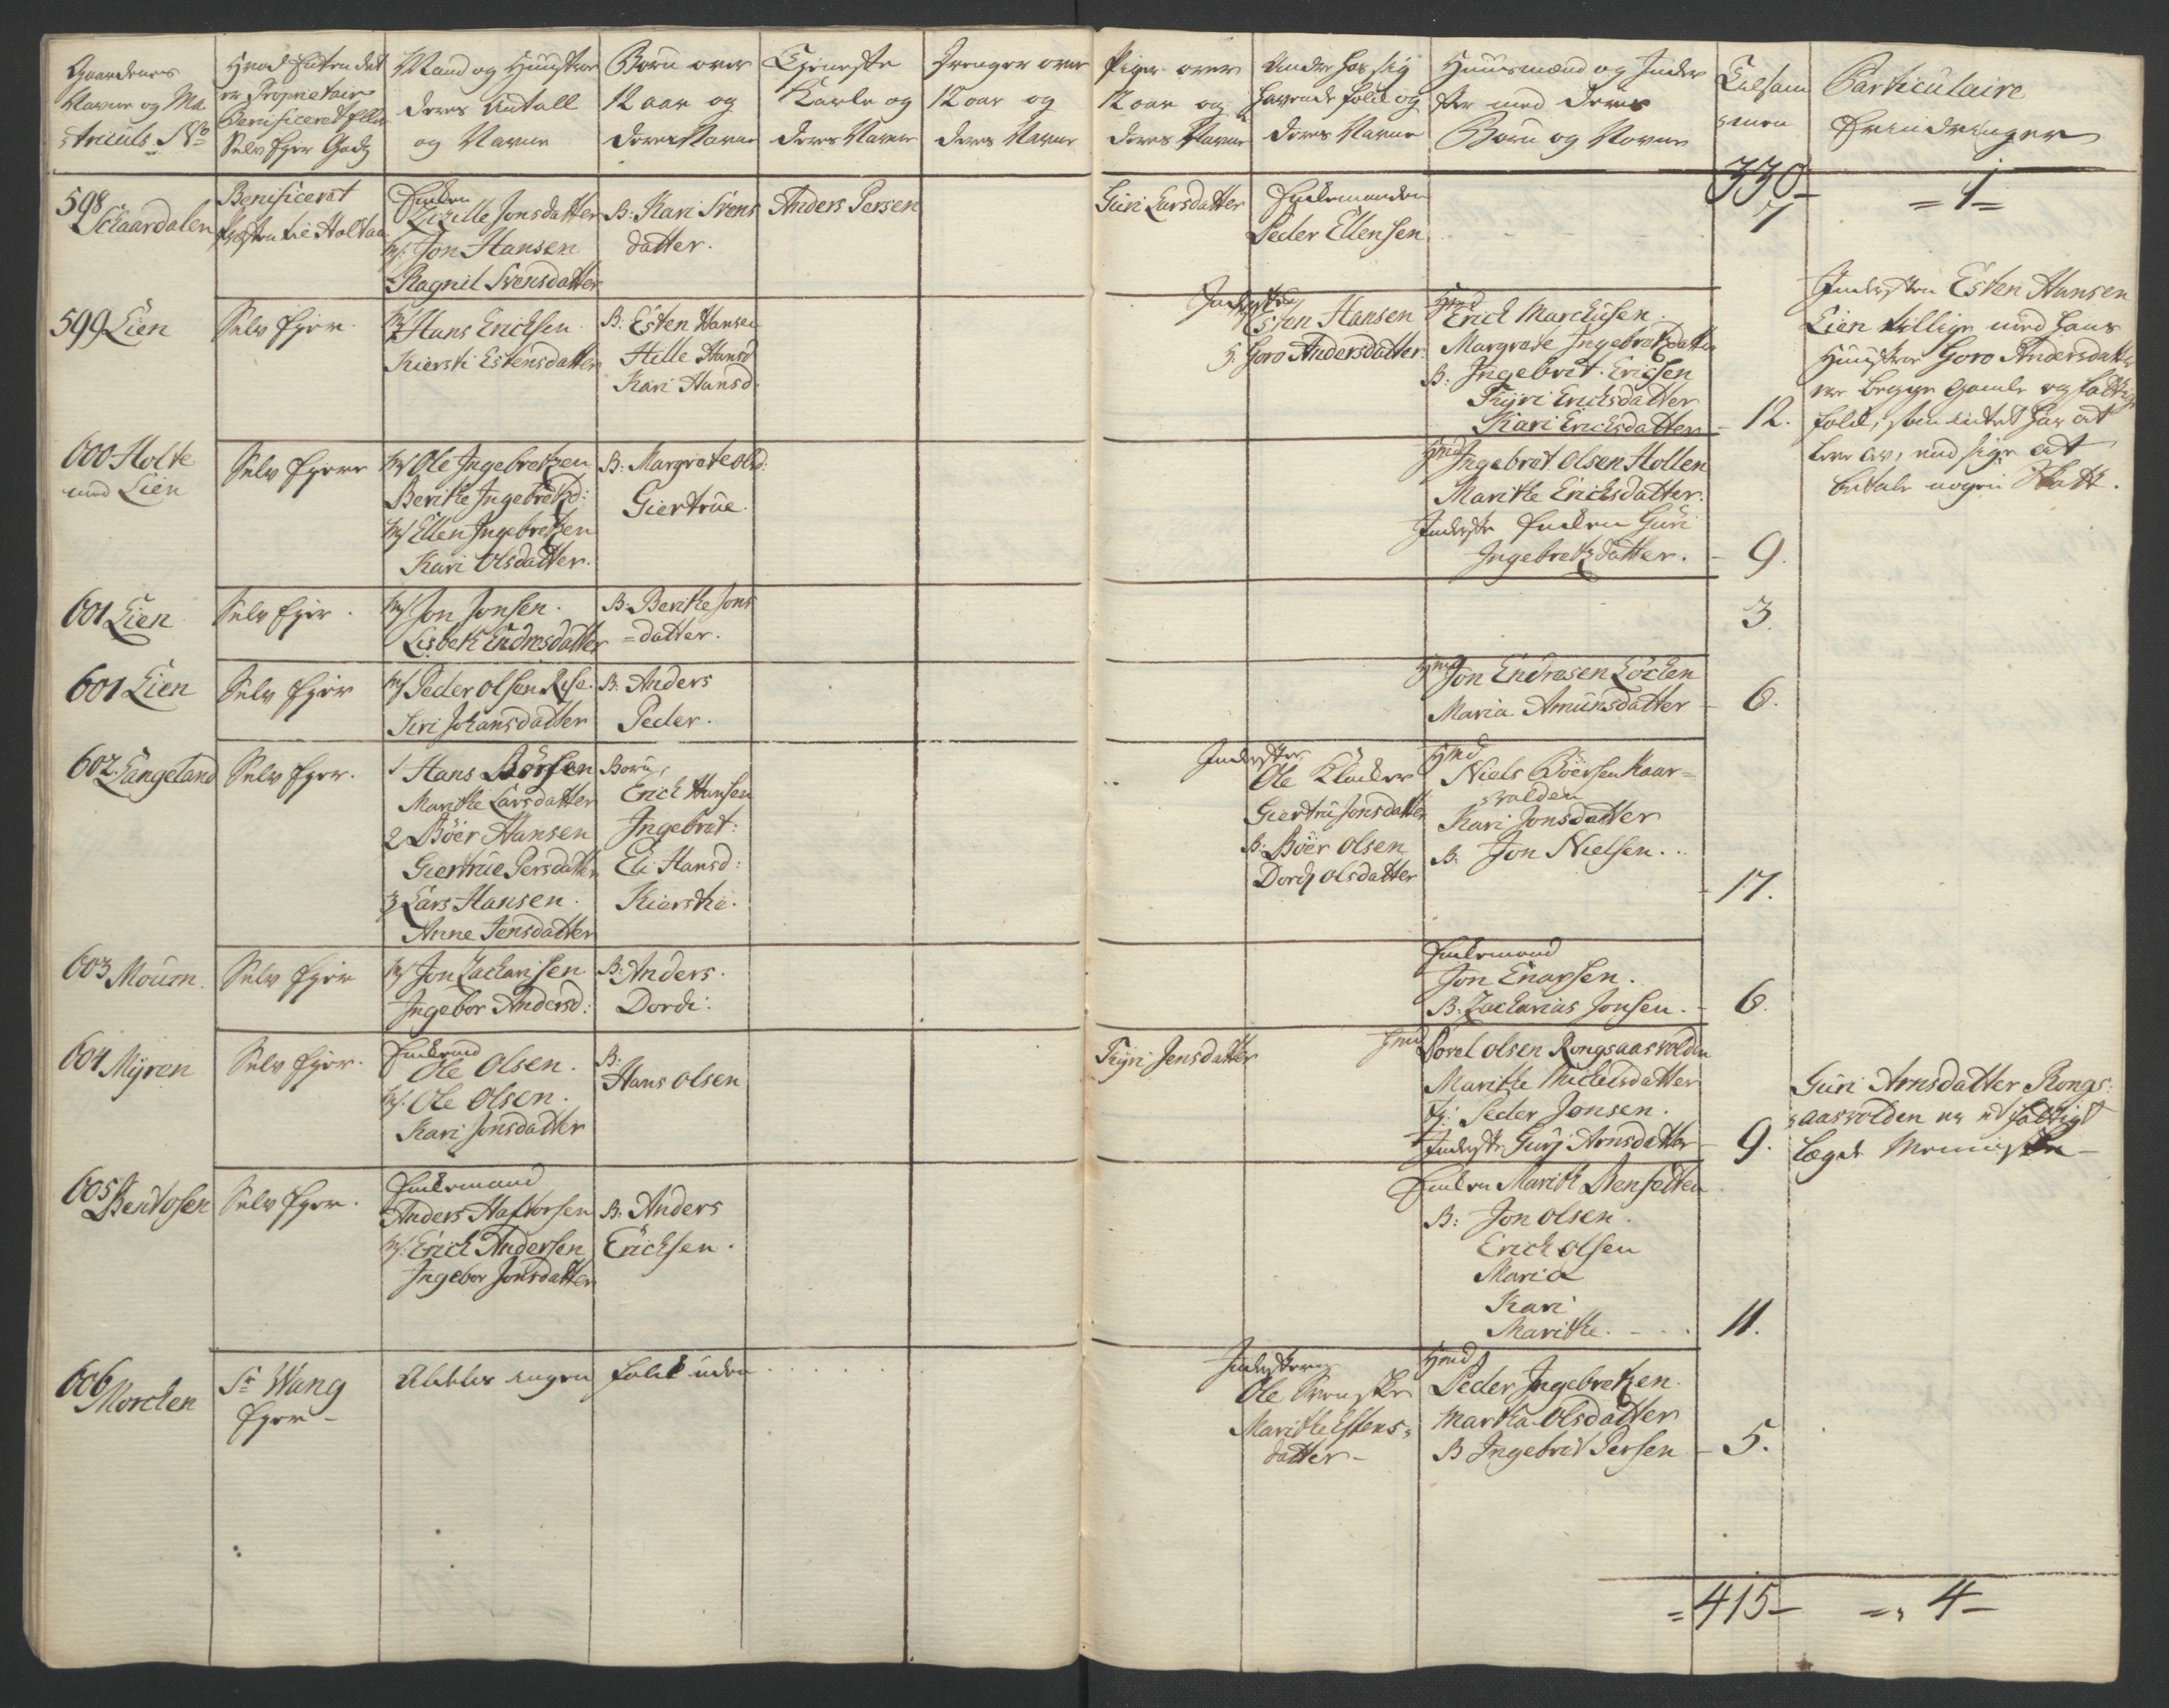 Gaardenes Navne og Ma-
triculs No
Hvad Enten det
er Proprietair
Benificeret Eller
Selv Eger Gods
Mand og Hustrue
deres Antall
og Navne
Børn over
12 aar og
deres Navne
Tieneste
Karle og
deres Navne
Drenger over
12 aar og
deres Navne
Piger over
12 aar og
deres Navne
Andre hos sig
havende folk og
deres Navne
Huusmænd og Inder
ster med deres
Børn og Navne
Tilsam
men
Particulaire
330
= 1 =
598
Benificeret
Enken
Zizille Jonsdatter
M: Jon Hansen
Ragnil Svensdatter
B: Kari Svens
datter.
Anders Persen
Guri Larsdatter
Enkemanden
Peder Ellensen
7
599 Lien
Selv Eger.
M Hans Erichsen
Kiersti Estensdatter
B: Esten Hansen
Hille Hansd
Kari Hansd.
Inderster
Esten Hansen
H: Goro Andersdatter
Hmd
Erich Marchusen.
Margrete Ingebretzdatter
B: Ingebret Ericsen
Kari Erichsdatter
12.
Indersten Esten Hansen
Lien tillige med hans
Hustrue Goro Andersdatter
er begge gamle og fattige
folk, som intet har at
leve av, end sige at
betale nogen Skatt.
600 Holte
med Lien
Selv Eger
M Ole Ingebretzen
Berithe Ingebretzd:
M Ellen Ingebretzen
Kari Olsdatter.
B: Margrete Olsd:
Giertrue.
Hmd Ingebret Olsen Hollen
Marithe Erichsdatter.
Inderste Enken Guri
Ingebretzdatter.
9.
601 Lien
Selv Eger.
M Jon Jonsen.
Lisbeth Endresdatter
B: Berithe Jons
= datter.
3.
601 Lien
Selv Eger
M Peder Olsen Rise.
Siri Johansdatter
B: Anders
Peder.
Hmd Jon Endresen Løchen
Maria Amunsdatter
6.
602 Langeland
Selv Eger.
1 Hans Børsen
Marithe Larsdatter
2 Böer Hansen
Giertrue Persdatter
3 Lars Hansen.
Anne Jensdatter
Børn,
Erich Hansen
Ingebret:
Eli Hansd:
Kiersthi.
Inderster
Ole Klocker
Giertru Jonsdatter
B: Böer Olsen
Dordj Olsdatter
Hmd
Niels Böersen Kaas=
volden
Kari Jonsdatter
B: Jon Nielsen..
17.
603 Mouen.
Selv Eger
M Jon Zacharisen
Ingebor Andersd:
B: Anders.
Dordi:
Enkemand
Jon Enarsen.
B: Zacharias Jonsen.
6.
604 Myren
Selv Eger.
Enkemd
Ole Olsen.
M: Ole Olsen.
Kari Jonsdatter
B:
Hans Olsen
Jensdatter
Hmd Povel Olsen Rongsaasvolden
Marithe Michelsdatter
Tj: Peder Jonsen.
Inderste Gurj Arnsdatter
9.
Guri Arnsdatter Rongs:
aasvolden er et fattigt
Lægds Menniske
605 Bentosen
Selv Eger.
Enkemand
Anders Haftorsen
M: Erich Andersen
Ingebor Jonsdatter
B: Anders
Erichsen.
Enken Marith
B: Jon Olsen.
Erich Olsen
Maria
Kari
Marithe. - . .
11.
606
Morchen
Sr Wang
Eger -
ingen folk uden . . . . .
Indersterne
Ole Svenske
Marithe Estens=
datter -
Hmd
Peder Ingebretzen.
Martha Olsdatter
B Ingebret Persen
5.
= 415 -
= „ 4 -